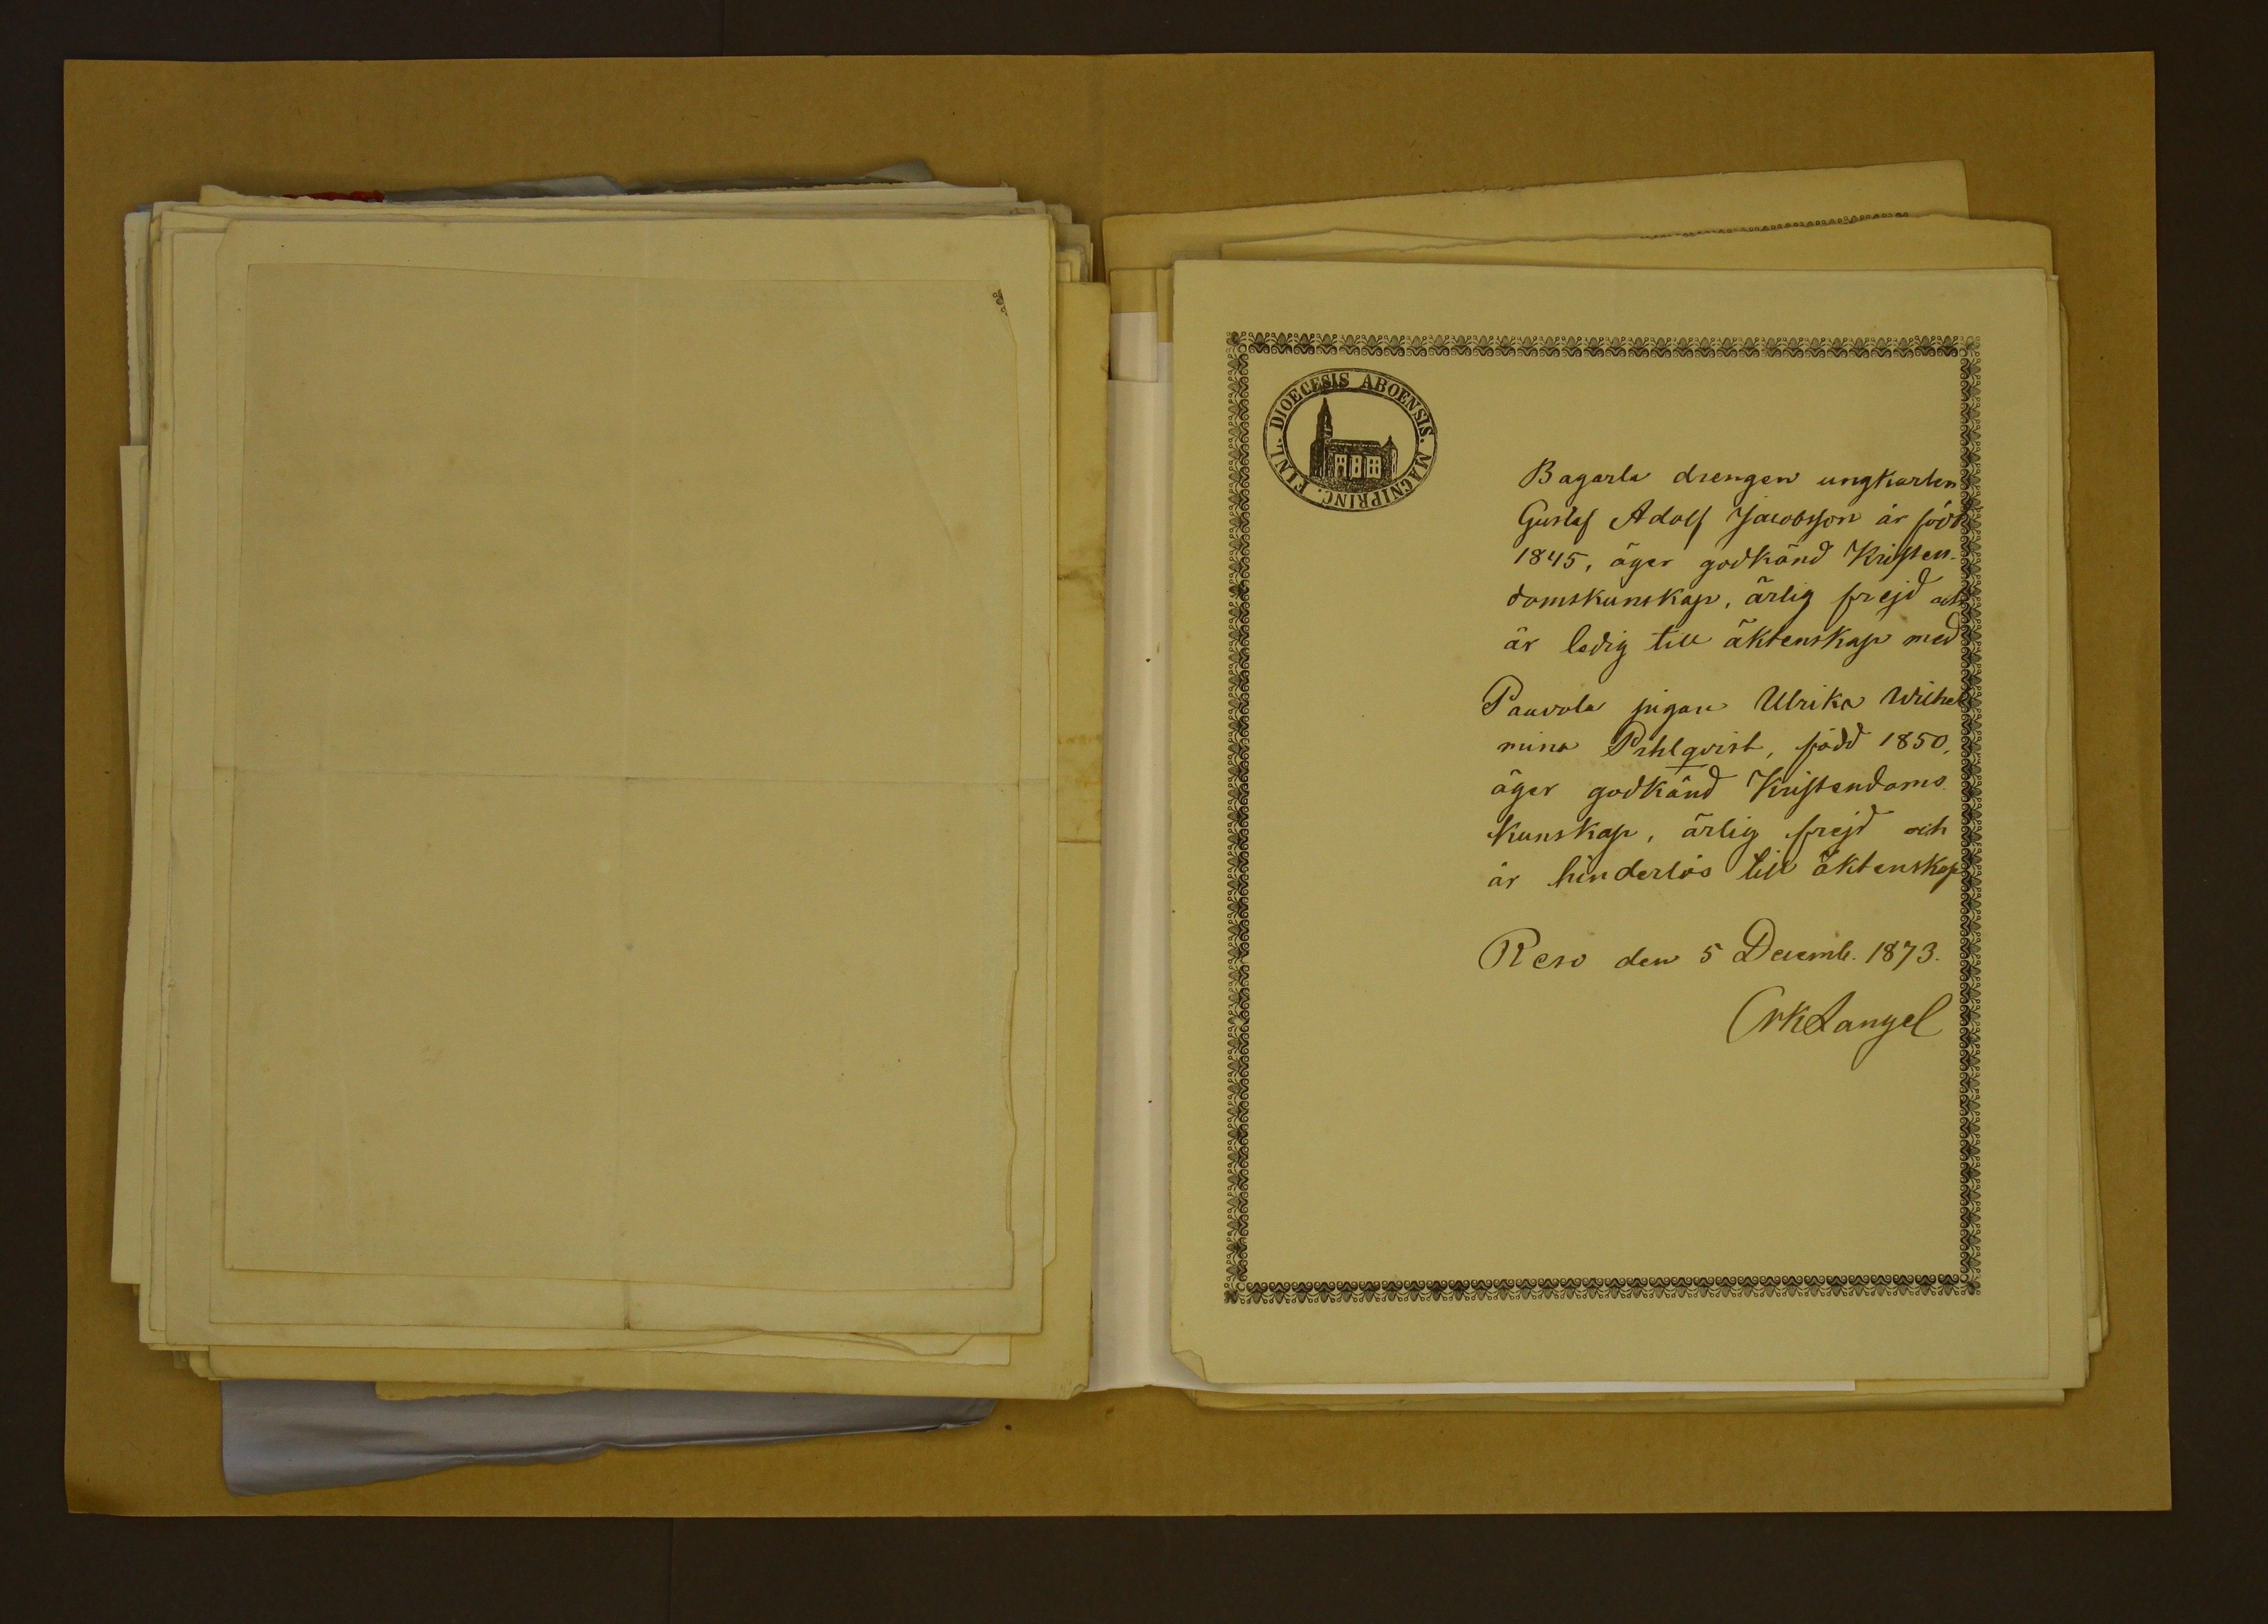 DIOECESIS ABOENSIS. MAGNIPRINC. FINL.
Bagarla drengen ungkarlen
Gustaf Adolf Jacobsson är född
1845, äger godkänd Kristen-
domskunskap, ärlig frejd och
är ledig till äktenskap med
Pauvola pigan Ulrika Wilhel
mina Pihlqvist, född 1850,
äger godkänd Kristendoms
kunskap, ärlig frejd och
är hinderlös till äktenskap
Reso den 5 Decemb. 1873.
Langel